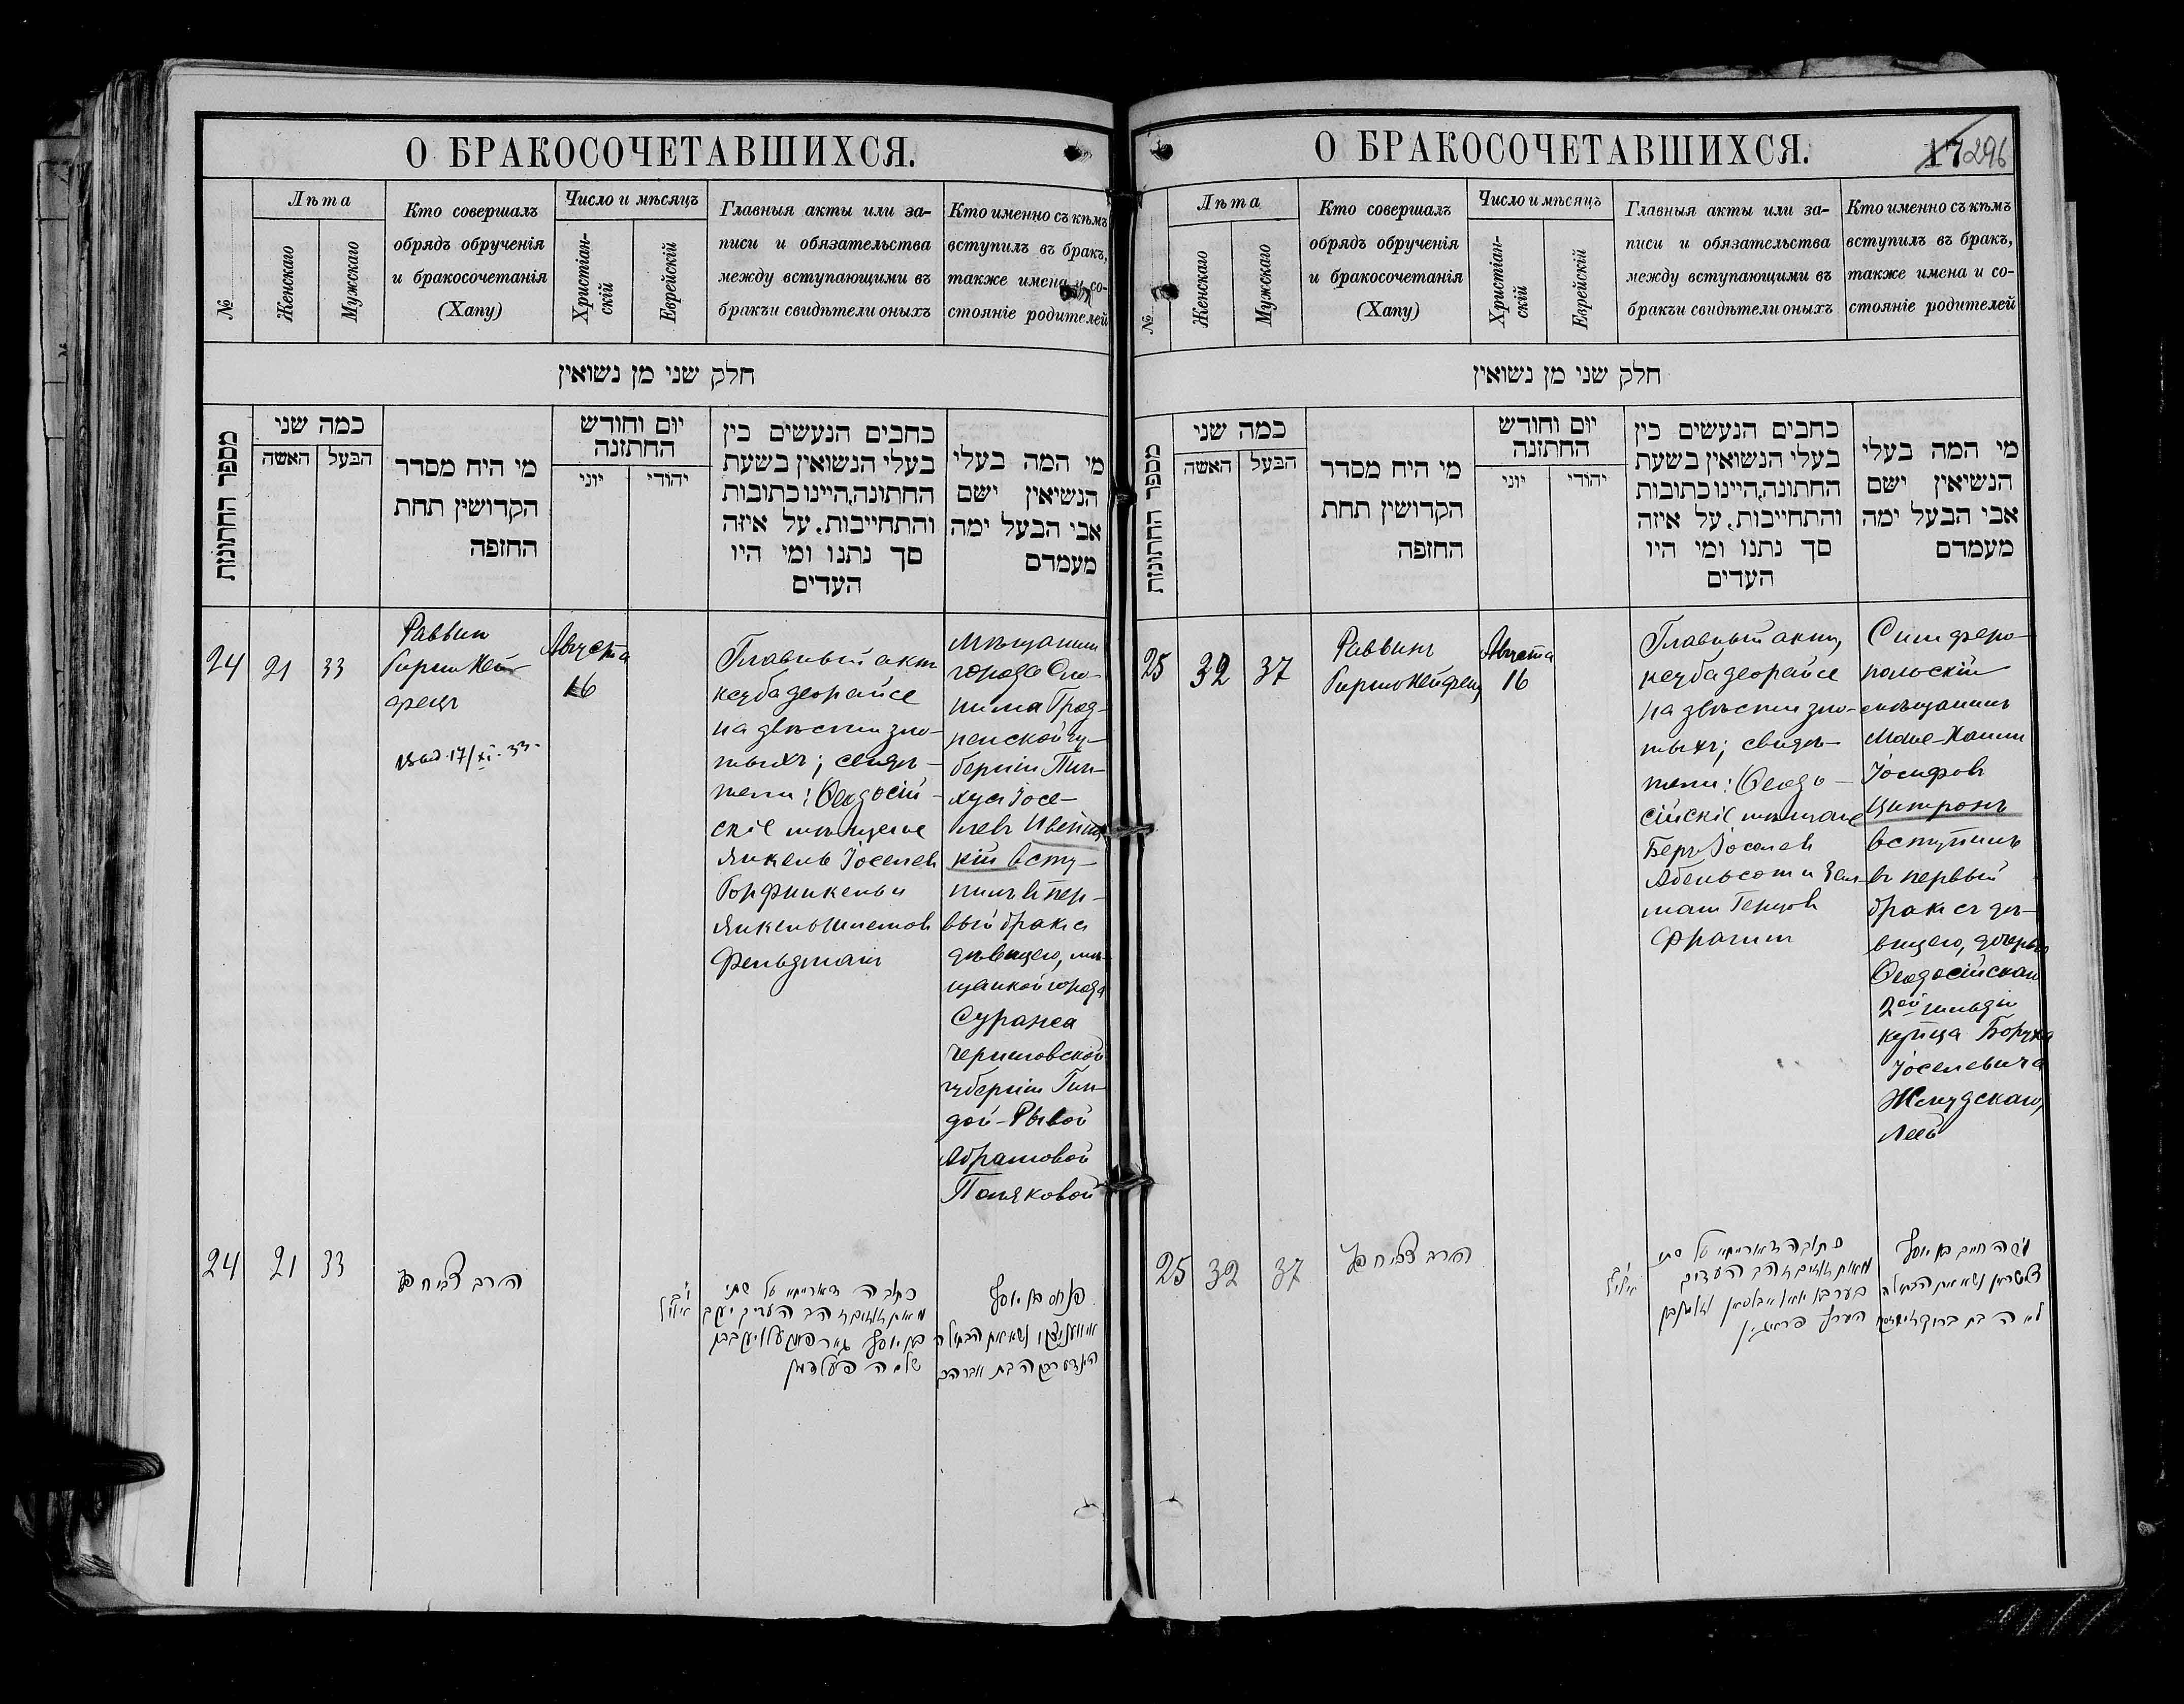 О БРАКОСОЧЕТАВШИХСЯ.
№
Лѣта
Женскаго
Мужскаго
Кто совершалъ
обрядъ обрученія
и бракосочетанія
(Хапу)
Число и мѣсяцъ
Христіан-
скій
Еврейскій
Главныя акты или за-
писи и обязательства
между вступающими въ
бракъи свидѣтели оныхъ
Кто именно съ кѣмъ
вступилъ въ бракъ,
также имена и со-
стояніе родителей
חלק שני מן נשואין
מספר החתונות
כמה שני
האשה
הבעל
מי היח מסדר
הקדושין תחת
החופה
יום וחודש
החתונה
יוני
יהודי
כחבים הנעשים כין
בעלי הנשואין בשעת
החתונה,היינו כתובות
והתחייבות, על איזה
סך נתנו ומי היו
העדים
מי המה בעלי
הנשיאין ישם
אבי הבעל ימה
מעמדם
24
21
33
Раввин
Гирш Ней-
фецъ
17/XI-33-
Августа
16
Главный актъ
кецбадеорайсе
на двѣсти зло-
тыхъ; свидѣ-
тели: Ѳеодосій-
скіе мѣщане
Янкель Іоселев
Горфинкель и
Янкель Шлемов
Фельдманъ
Мѣщанин
города Сло-
нима Грод-
ненской гу-
берніи Пин-
хус Іосе-
левъ Ивениц-
кій всту-
пилъ в пер-
вый бракъ с
дѣвицею, мѣ-
щанкой города
Суража
Черниговской
губерніи Гин-
дой-Рывой
Абрамовой
Поляковой
24
21
33
הרב
כתובה דארייתא על שתי
מאות זהובים העדים יעקב
בן יוסף
שלמה פעלדמן
פנחס בן יוסף
נשא את הבתולה
בת אברהם
О БРАКОСОЧЕТАВШИХСЯ.
17 296
№
Лѣта
Женскаго
Мужскаго
Кто совершалъ
обрядъ обрученія
и бракосочетанія
(Хапу)
Число и мѣсяцъ
Христіан-
скій
Еврейскій
Главныя акты или за-
писи и обязательства
между вступающими въ
бракъи свидѣтели оныхъ
Кто именно съ кѣмъ
вступилъ въ бракъ,
также имена и со-
стояніе родителей
חלק שני מן נשואין
מספר החתונות
כמה שני
האשה
הבעל
מי היח מסדר
הקדושין תחת
החופה
יום וחודש
החתונה
יוני
יהודי
כחבים הנעשים כין
בעלי הנשואין בשעת
החתונה,היינו כתובות
והתחייבות, על איזה
סך נתנו ומי היו
העדים
מי המה בעלי
הנשיאין ישם
אבי הבעל ימה
מעמדם
25
32
37
Раввинъ
Гирш Нейфецъ
Августа
16
Главный актъ,
кецбадеорайсе
на двѣсти зло-
тыхъ; свидѣ-
тели: Ѳеодо-
сійскіе мѣщане
Беръ Іоселев
Абельсон и Зал-
ман Герцов
Фрагин
Симферо-
польскій
мѣщанинъ
Моше-Хаим
Іосифовъ
Цитронъ
вступилъ
въ первый
бракъ съ дѣ-
вицею, дочерью
Ѳеодосійскаго
2ой гильдіи
купца Боруха
Іоселевича
Жмудскаго,
Леей
25
32
37
הרב
כתובה דארייתא על שתי
מאות זהובים העדים
משה חיים בן יוסף
ציטרון נשא את הבתולה
לאה בת ברוך